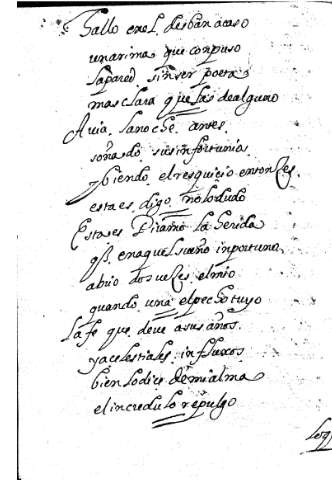 Hallo en el desban acaso
una rima que compuso
la pared sin ser poeta
mas clara que las de alguno
Auia la noche antes
soñado sus infortunios
y biendo el resquicio entonces
esta es digo no lo dudo
Esta es Piramo la herida
q̃ en aquel sueño inportuno
abrio dos veces el mio
quando una el pecho tuyo
la fe que deve a sus años
y a celestiales influxos
bien lo dice de mi alma
el incredulo repulgo